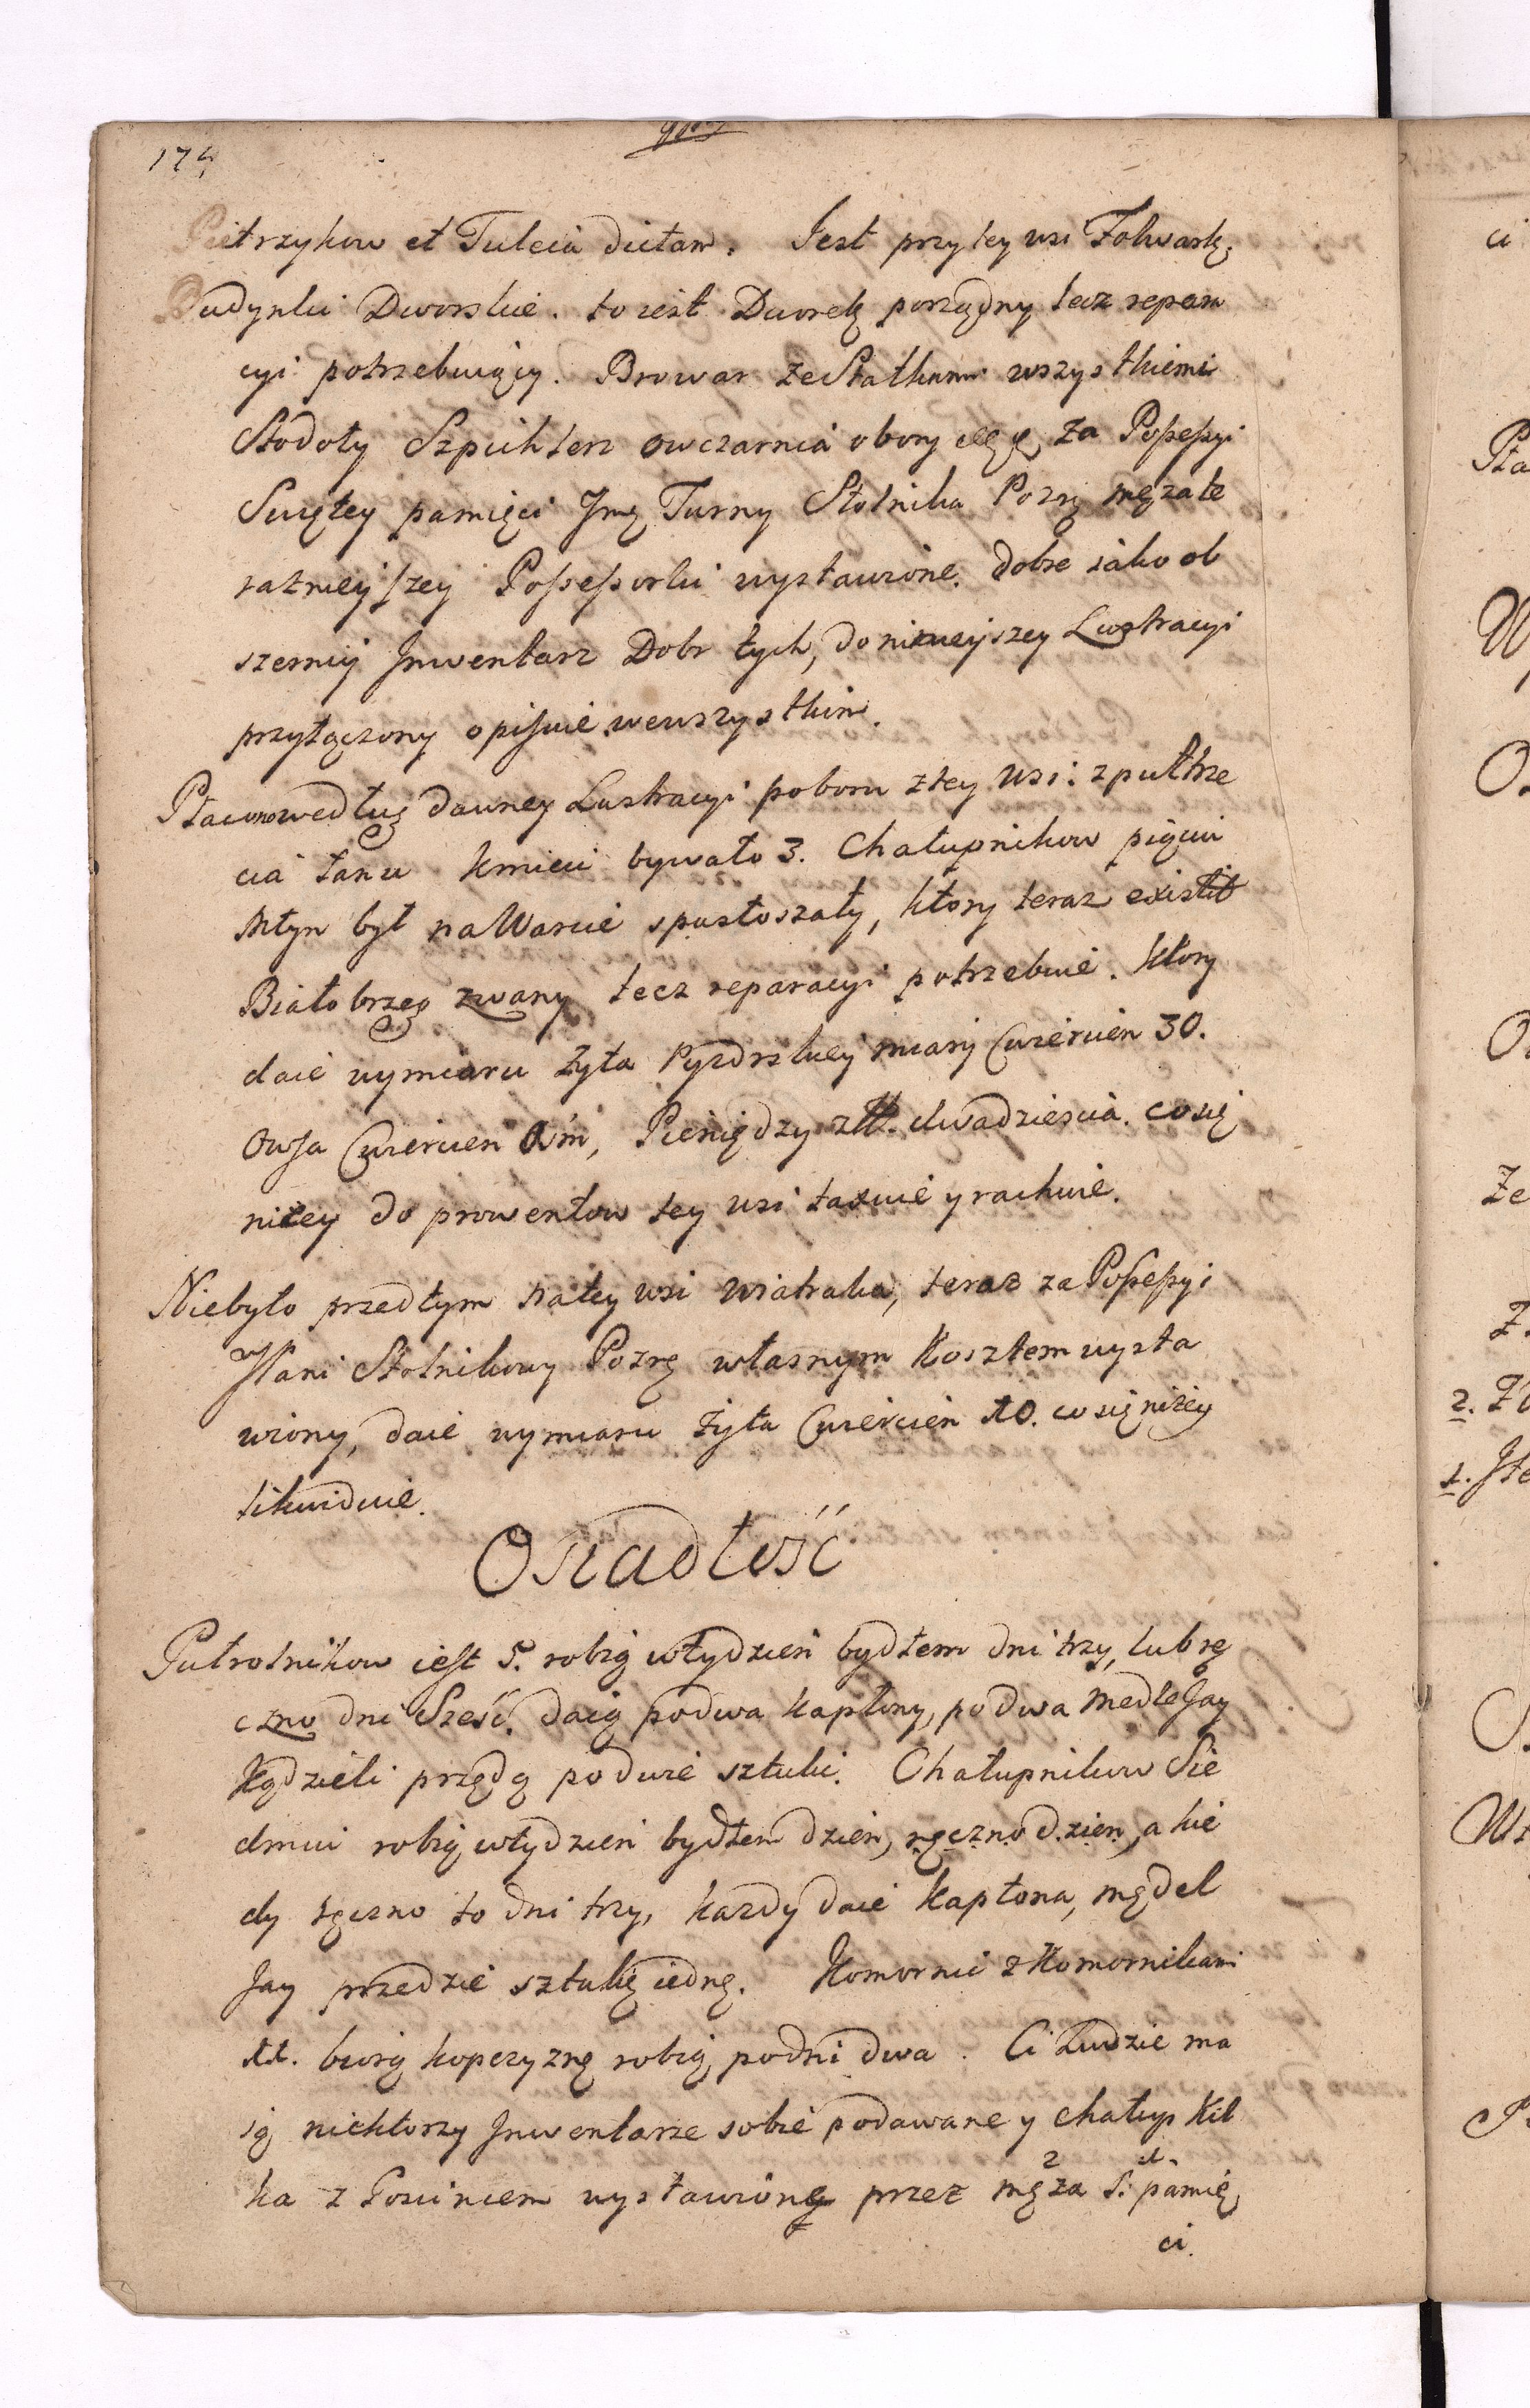 174
Pietrzykow et Tulcia dictam. Jest przy tey wsi Folwark,
Budynki Dworskie. to iest Dworek porządny lecz repara
cyi potrzebuiący. Browar ze Statkami wszystkiemi
Stodoły Szpichlerz owczarnia obory etc za Possessyi
Swiętey pamięci Jmę Turny Stolnika Pozńę męża te
raznieyszey Possessorki wystawione. dobre iako ob
szerniy Inwentarz Dobr tych, do ninieyszey Lustracyi
przyłączony opisuie we wszystkim.
Płacono według dawney Lustracyi poboru z tey wsi: z pułtrze
cia łanu Kmieci bywało 3. Chałupnikow pięciu
Młyn był na Warcie spustoszały, ktory teraz existit
Białobrzeg zwany lecz reparacyi potrzebuie. ktory
daie wymiaru Zyta Pyzdrskiey miary Cwiercien 30.
Owsa Cwiercien Ośm, Pieniędzy złł. dwadziescia. co się
niżey do prowentow tey wsi taxuie y rachuie.
Niebyło przedtym na tey wsi Wiatraka, teraz za Possessyi
JPani Stolnikowy Pozńę własnym Kosztem wysta
wiony, daie wymiaru Żyta Cwiercien 10. co się niżey
likwiduie.
Osiadłość
Pułrolnikow iest 5. robią w tydzien bydłem dni trzy, lub rę
czno dni Sześć. daią po dwa kapłony, po dwa Medle Jay
Kądzieli przędą po dwie sztuki. Chałupnikow Sie
dmiu robią w tydzien bydłem dzien, ręczno dzien, a kie
dy ręczno to dni trzy, kazdy daie Kapłona, mędel
Jay przedzie sztukę iedną. Komornic z Komornikami
11. biorą kopczyznę robią po dni dwa. Ci Ludzie ma
ią niektorzy Inwentarze sobie podawane y chałup Kil
ka z Goscincem wystawione przez męża S: pamię
2 1.
ci